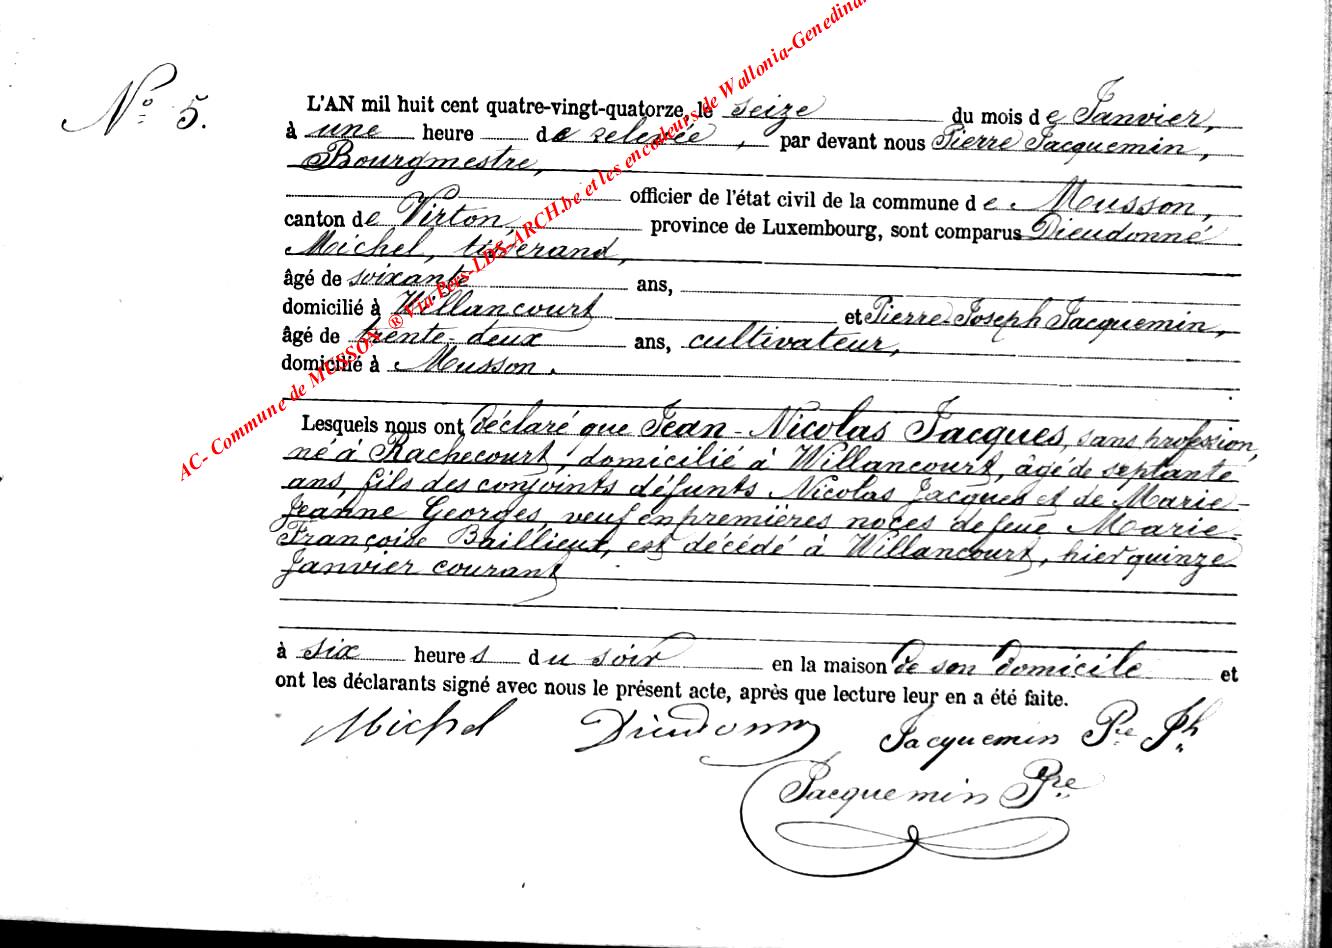 N° 5.
L'AN mil huit cent quatre-vingt-quatorze, le seize du mois de Janvier,
à une heure de relevée, par devant nous Pierre Jacquemin,
Bourgmestre,
officier de l'état civil de la commune de Musson,
canton de Virton, province de Luxembourg, sont comparus Dieudonné
Michel, tisserand,
âgé de soixante ans,
domicilié à Willancourt et Pierre-Joseph Jacquemin,
âgé de trente-deux ans, cultivateur,
domicilié à Musson.
Lesquels nous ont déclaré que Jean-Nicolas Jacques, sans profession,
né à Rachecourt, domicilié à Willancourt, âgé de septante
ans, fils des conjoints défunts Nicolas Jacques et de Marie-
Jeanne Georges, veuf en premières noces de feue Marie-
Françoise Baillieux, est décédé à Willancourt, hier quinze
Janvier courant
à six heures du soir en la maison de son domicile et
ont les déclarants signé avec nous le présent acte, après que lecture leur en a été faite.
Michel Dieudonné Jacquemin Pre Jh
Jacquemin Pre
AC- Commune de MUSSON ® Via Fers-LDS-ARCH.be et les encodeurs de Wallonia-Genedina